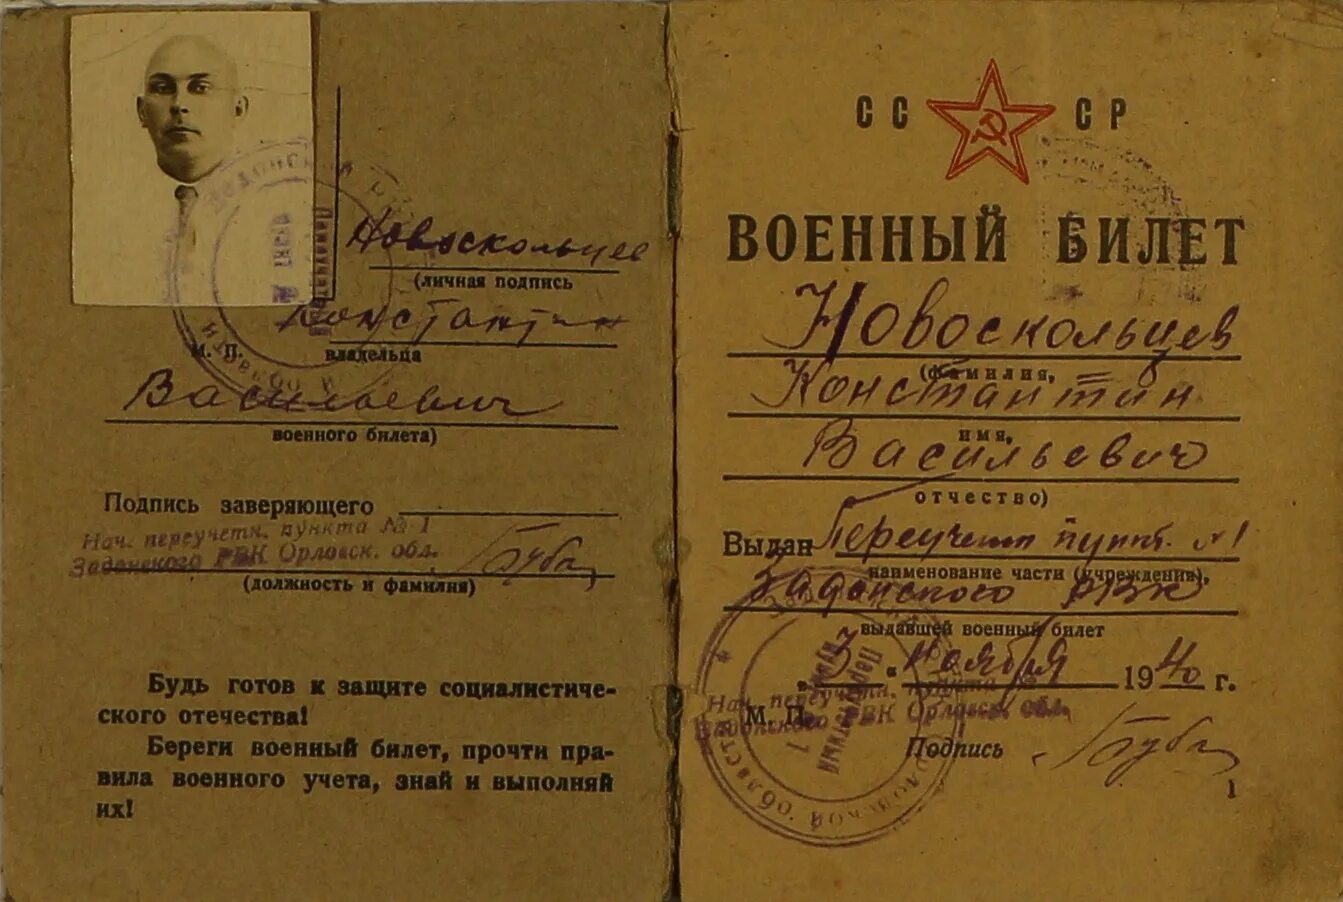 Новоскольцев
(личная подпись
Константин
М. П. владельца
Васильевич
военного билета)
Подпись заверяющего
Нач. переучетн. пункта № 1
Задонского РВК Орловск. обл.
(должность и фамилия)
Будь готов к защите социалистиче-
ского отечества!
Береги военный билет, прочти пра-
вила военного учета, знай и выполняй
их!
СС СР
ВОЕННЫЙ БИЛЕТ
Новоскольцев
(фамилия,
Константин
имя,
Васильевич
отчество)
Выдан Переучетн пункт. №1
наименование части (учреждения),
Задонского РВК
выдавшей военный билет
ноября 1940 г.
Нач. переучетн. пункта №
Задонского РВК Орловск. обл.
М. П.
Подпись
1